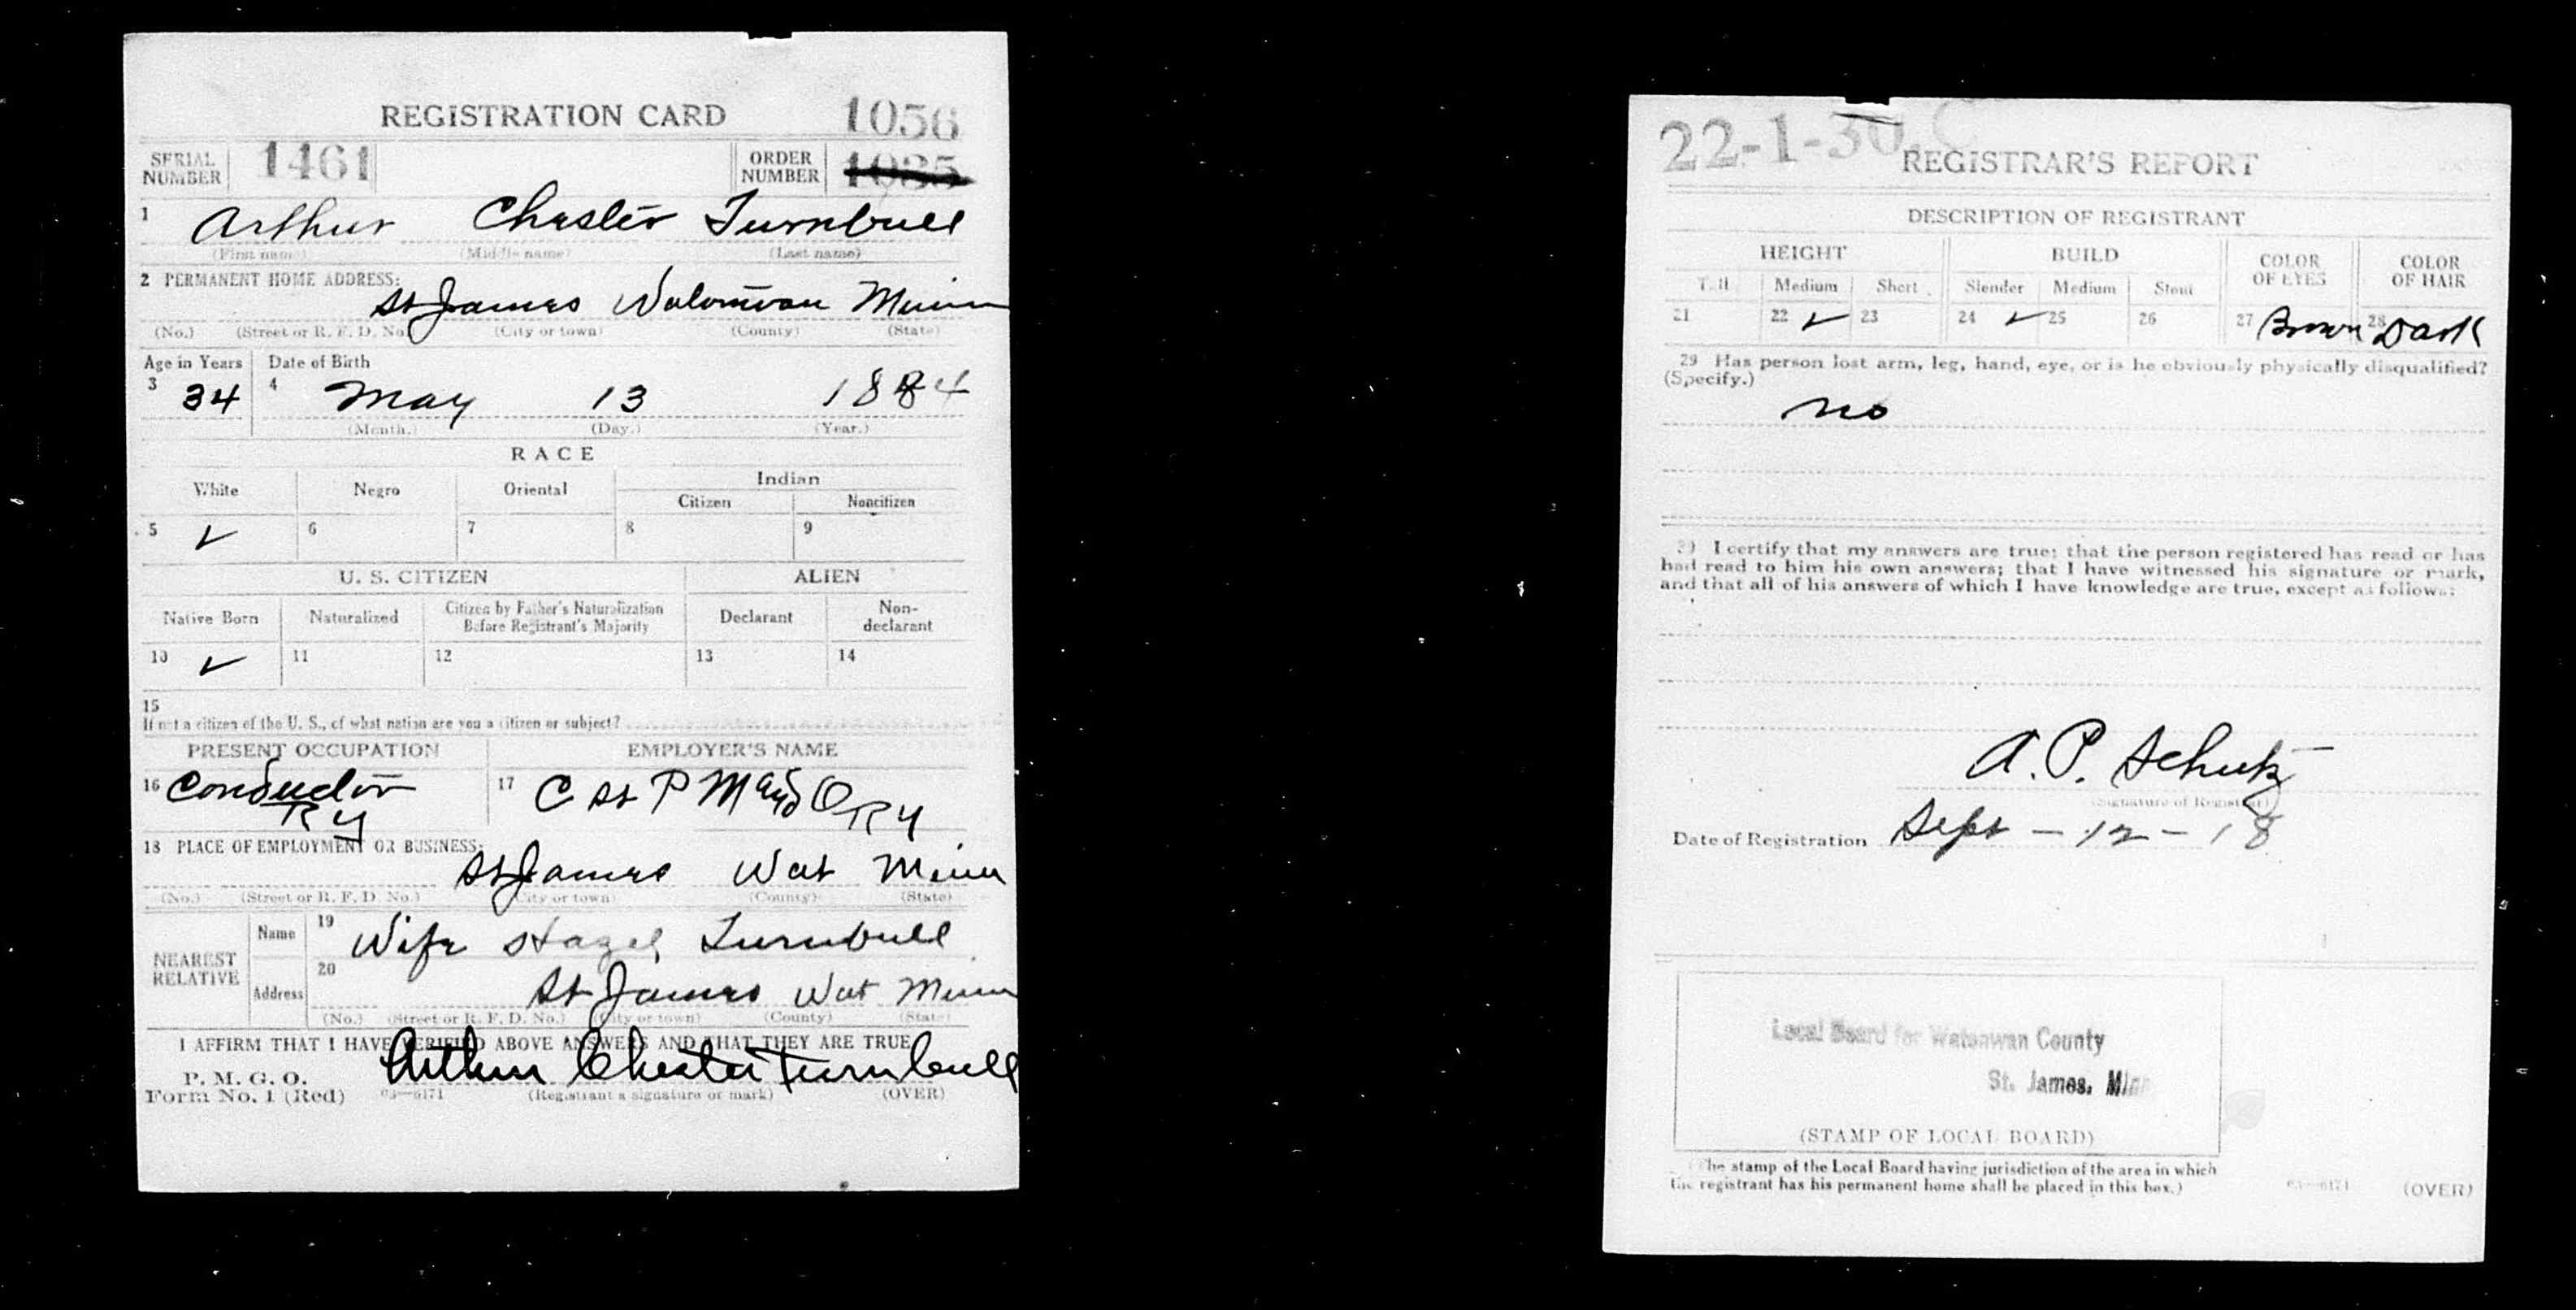 REGISTRATION CARD
1056
SERIAL NUMBER 1461 ORDER NUMBER 1035
1 Arthur Chester Turnbull
(First name) (Middle name) (Last name)
2 PERMANENT HOME ADDRESS:
St James Watonwan Minn
(No.) (Street or R. F. D. No.) (City or town) (County) (State)
Age in Years Date of Birth
3 34 4 May 13 1884
(Month.) (Day.) (Year.)
RACE
White Negro Oriental Indian
Citizen Noncitizen
5 ✓ 6 7 8 9
U. S. CITIZEN ALIEN
Native Born Naturalized Citizen by Father's Naturalization Before Registrant's Majority Declarant Non-declarant
10 ✓ 11 12 13 14
15
If not a citizen of the U. S., of what nation are you a citizen or subject?
PRESENT OCCUPATION EMPLOYER'S NAME
16 Conductor Ry 17 C St P M and O Ry
18 PLACE OF EMPLOYMENT OR BUSINESS:
St James Wat Minn
(No.) (Street or R. F. D. No.) (City or town) (County) (State)
NEAREST RELATIVE Name 19 Wife Hazel Turnbull
Address 20 St James Wat Minn
(No.) (Street or R. F. D. No.) (City or town) (County) (State)
I AFFIRM THAT I HAVE VERIFIED ABOVE ANSWERS AND THAT THEY ARE TRUE
P. M. G. O.
Form No. 1 (Red) Arthur Chester Turnbull
03—6171 (Registrant's signature or mark) (OVER)
22-1-30. C
REGISTRAR'S REPORT
DESCRIPTION OF REGISTRANT
HEIGHT BUILD COLOR OF EYES COLOR OF HAIR
Tall Medium Short Slender Medium Stout
21 22 ✓ 23 24 ✓ 25 26 27 Brown 28 Dark
29 Has person lost arm, leg, hand, eye, or is he obviously physically disqualified?
(Specify.)
no
30 I certify that my answers are true; that the person registered has read or has
had read to him his own answers; that I have witnessed his signature or mark,
and that all of his answers of which I have knowledge are true, except as follows:
A. P. Schutz
(Signature of Registrar)
Date of Registration Sept - 12 - 18
Local Board for Watonwan County
St. James, Minn
(STAMP OF LOCAL BOARD)
(The stamp of the Local Board having jurisdiction of the area in which
the registrant has his permanent home shall be placed in this box.)
03—6171 (OVER)